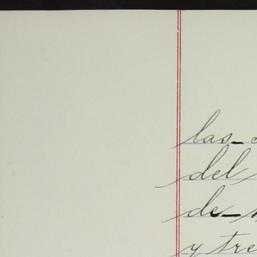 las
del
de
y tre